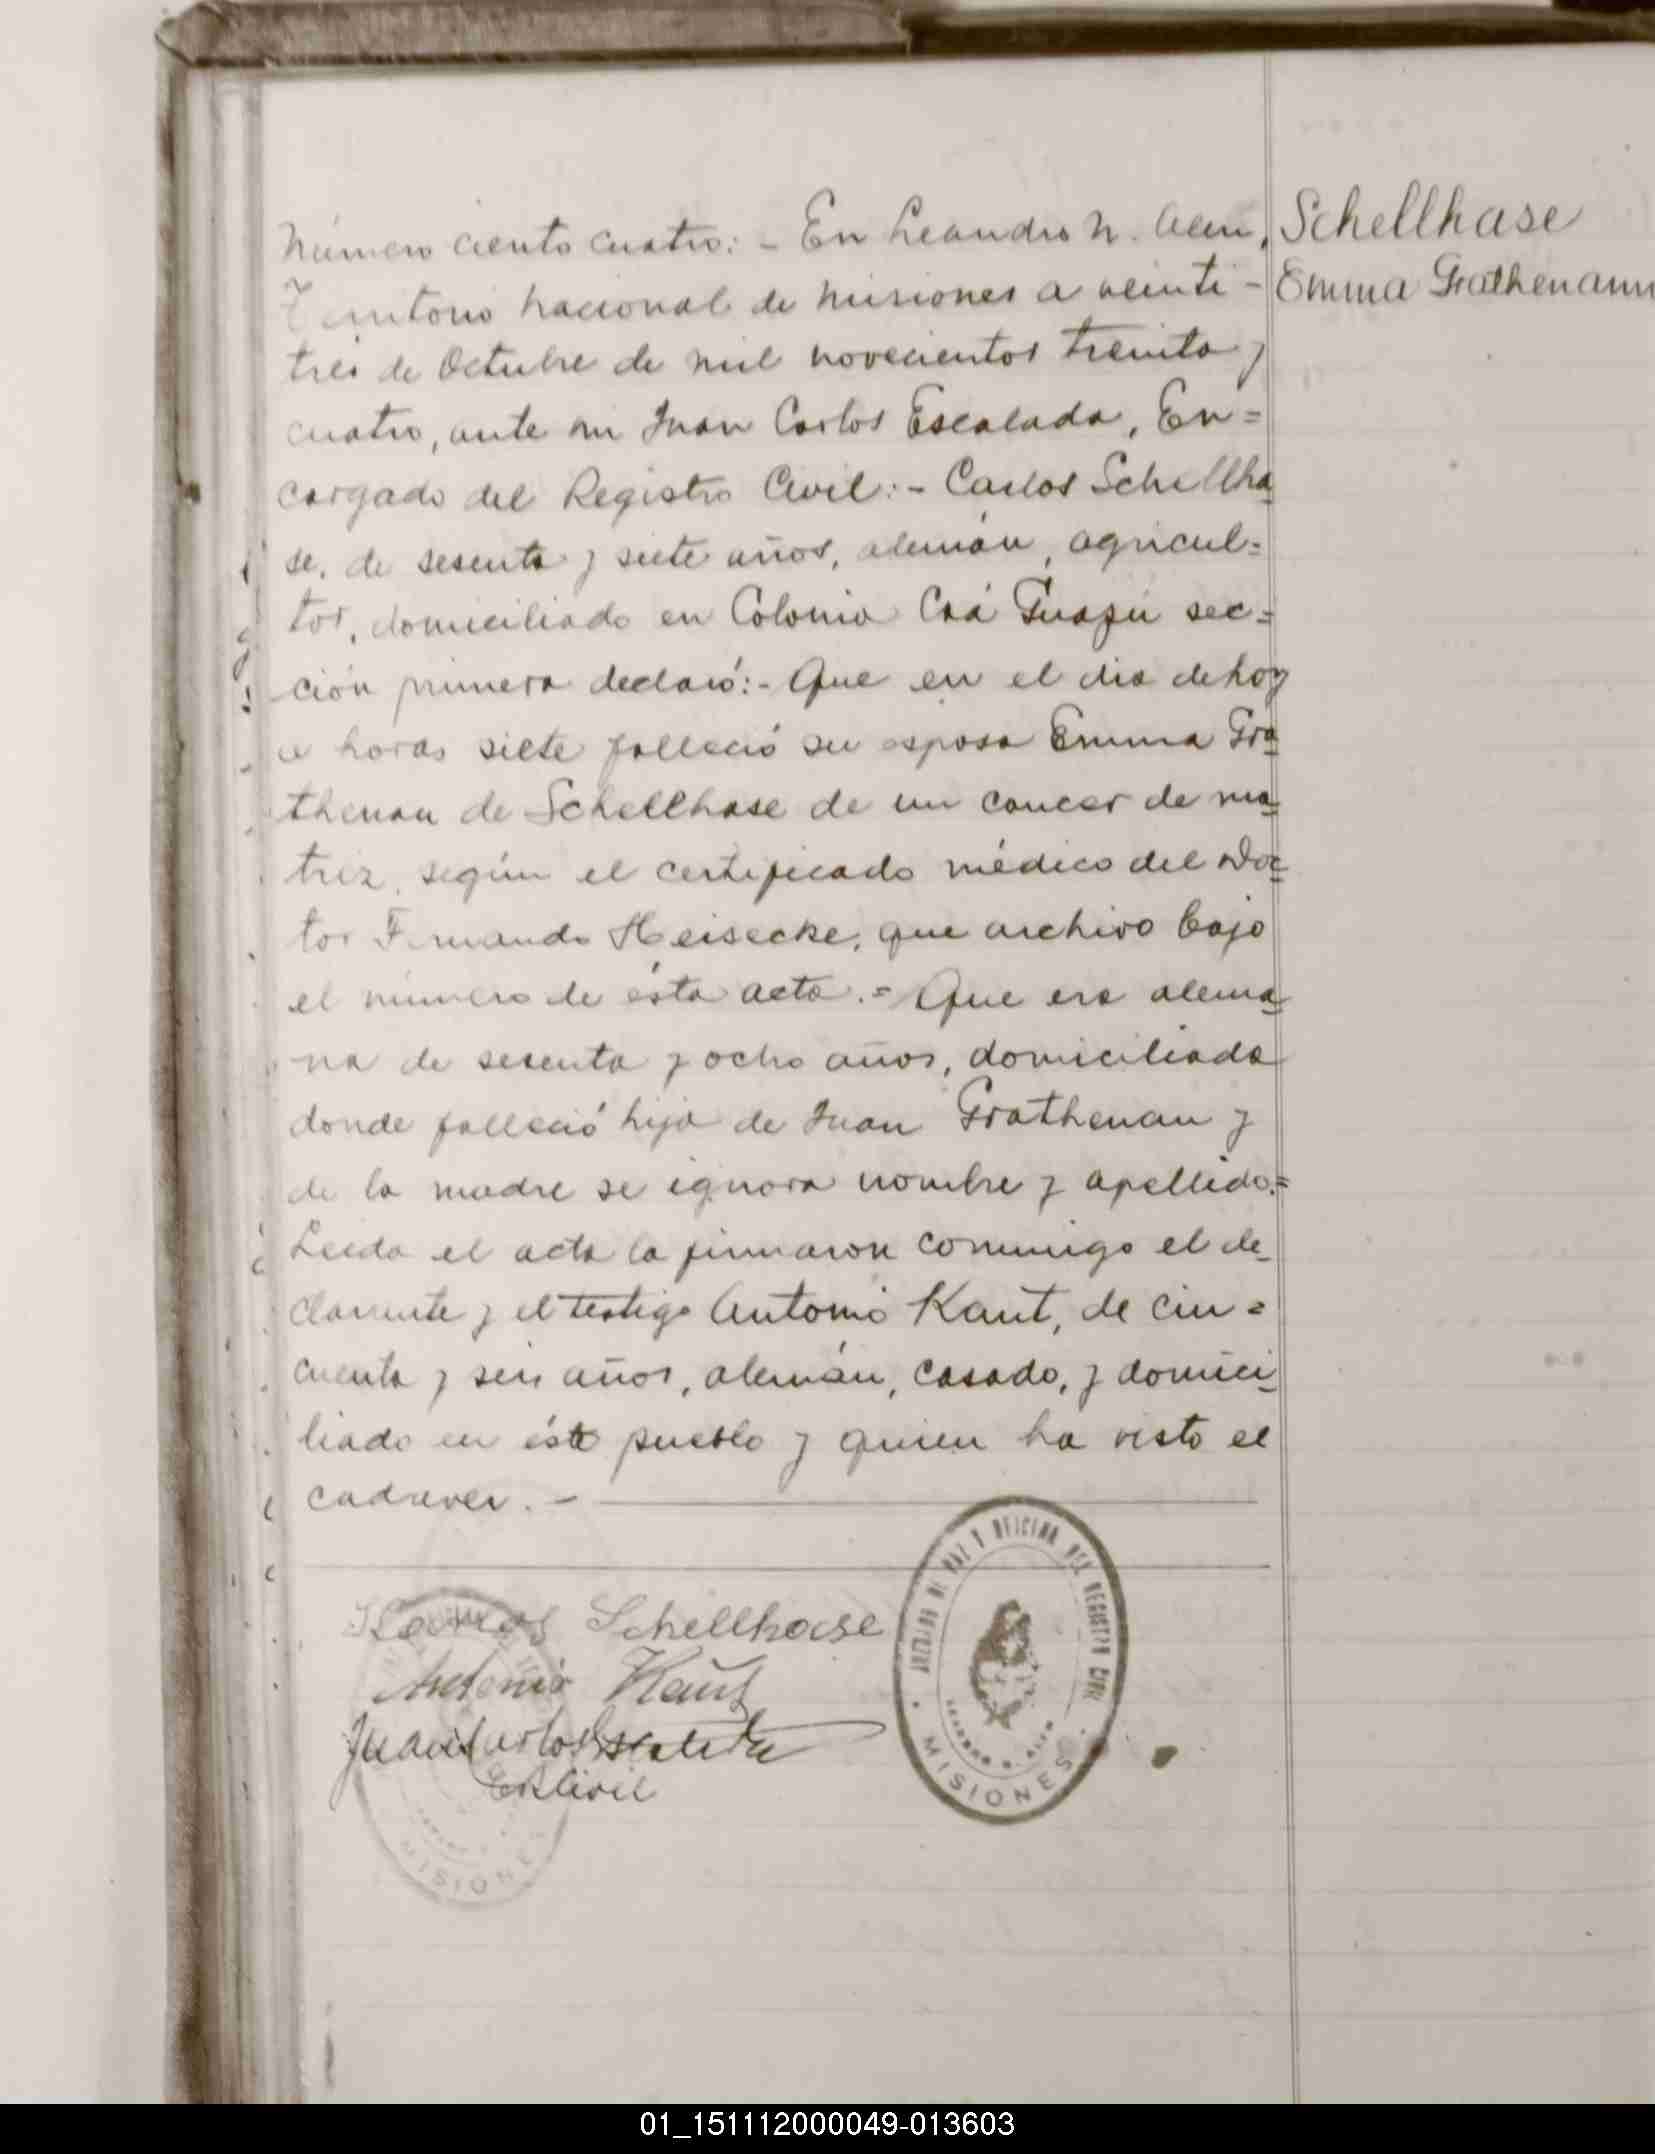 Número ciento cuatro: - En Leandro N. Alem,
Territorio nacional de Misiones a veinti -
tres de Octubre de mil novecientos treinta y
cuatro, ante mi Juan Carlos Escalada, En=
cargado del Registro Civil: - Carlos Schellha
se, de sesenta y siete años, alemán, agricul=
tor, domiciliado en Colonia Caá Guazú sec=
ción primera declaró: - Que en el dia de hoy
a horas siete falleció su esposa Emma Gra
thenau de Schellhase de un cancer de ma
triz, según el certificado médico del Doc
tor Fernando Heisecke, que archivo bajo
el número de ésta acta. = Que era alema
na de sesenta y ocho años, domiciliada
donde falleció hija de Juan Grathenau y
de la madre se ignora nombre y apellido. =
Leida el acta la firmaron conmigo el de
clarante y el testigo Antonio Kaut, de cin=
cuenta y seis años, alemán, casado, y domici
liado en éste pueblo y quien ha visto el
cadaver. -
Schellhase
Emma Grathenann
Schellhase
Antonio Kaut
Juan Carlos Escalada
JUZGADO DE PAZ Y OFICINA DEL REGISTRO CIVIL
LEANDRO N. ALEM
MISIONES
MISIONES
01_151112000049-013603